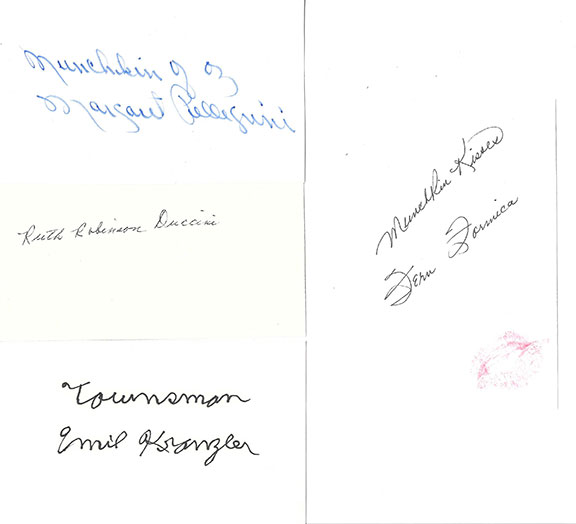 Munchkin of Oz
Margaret Pellegrini
Ruth Robinson Duccini
Townsman
Emil Kranzler
Munchkin Kisses
Fern Formica